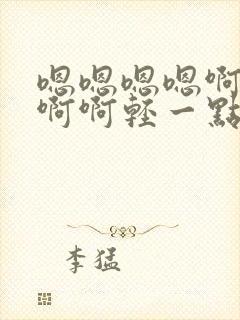 嗯嗯嗯嗯啊
啊啊轻一點
李猛